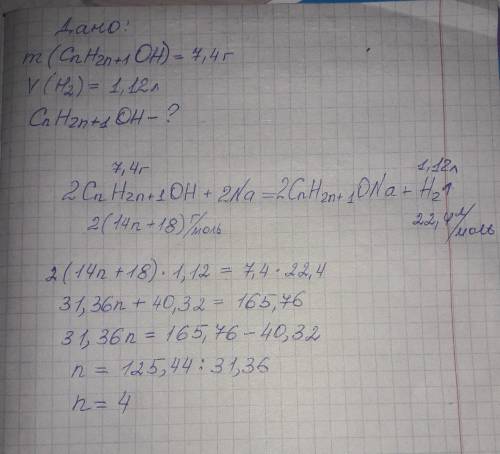 Дано:
m(CnH2n+1OH)=7,4г
V(H2)=1,12л
CnH2n+1OH-?
7,4г 1,12л
2CnH2n+1OH+2Na=2CnH2n+1ONa+H2↑
2(14n+18)г/моль 22,4л/моль
2(14n+18)·1,12=7,4·22,4
31,36n+40,32=165,76
31,36n=165,76-40,32
n=125,44:31,36
n=4